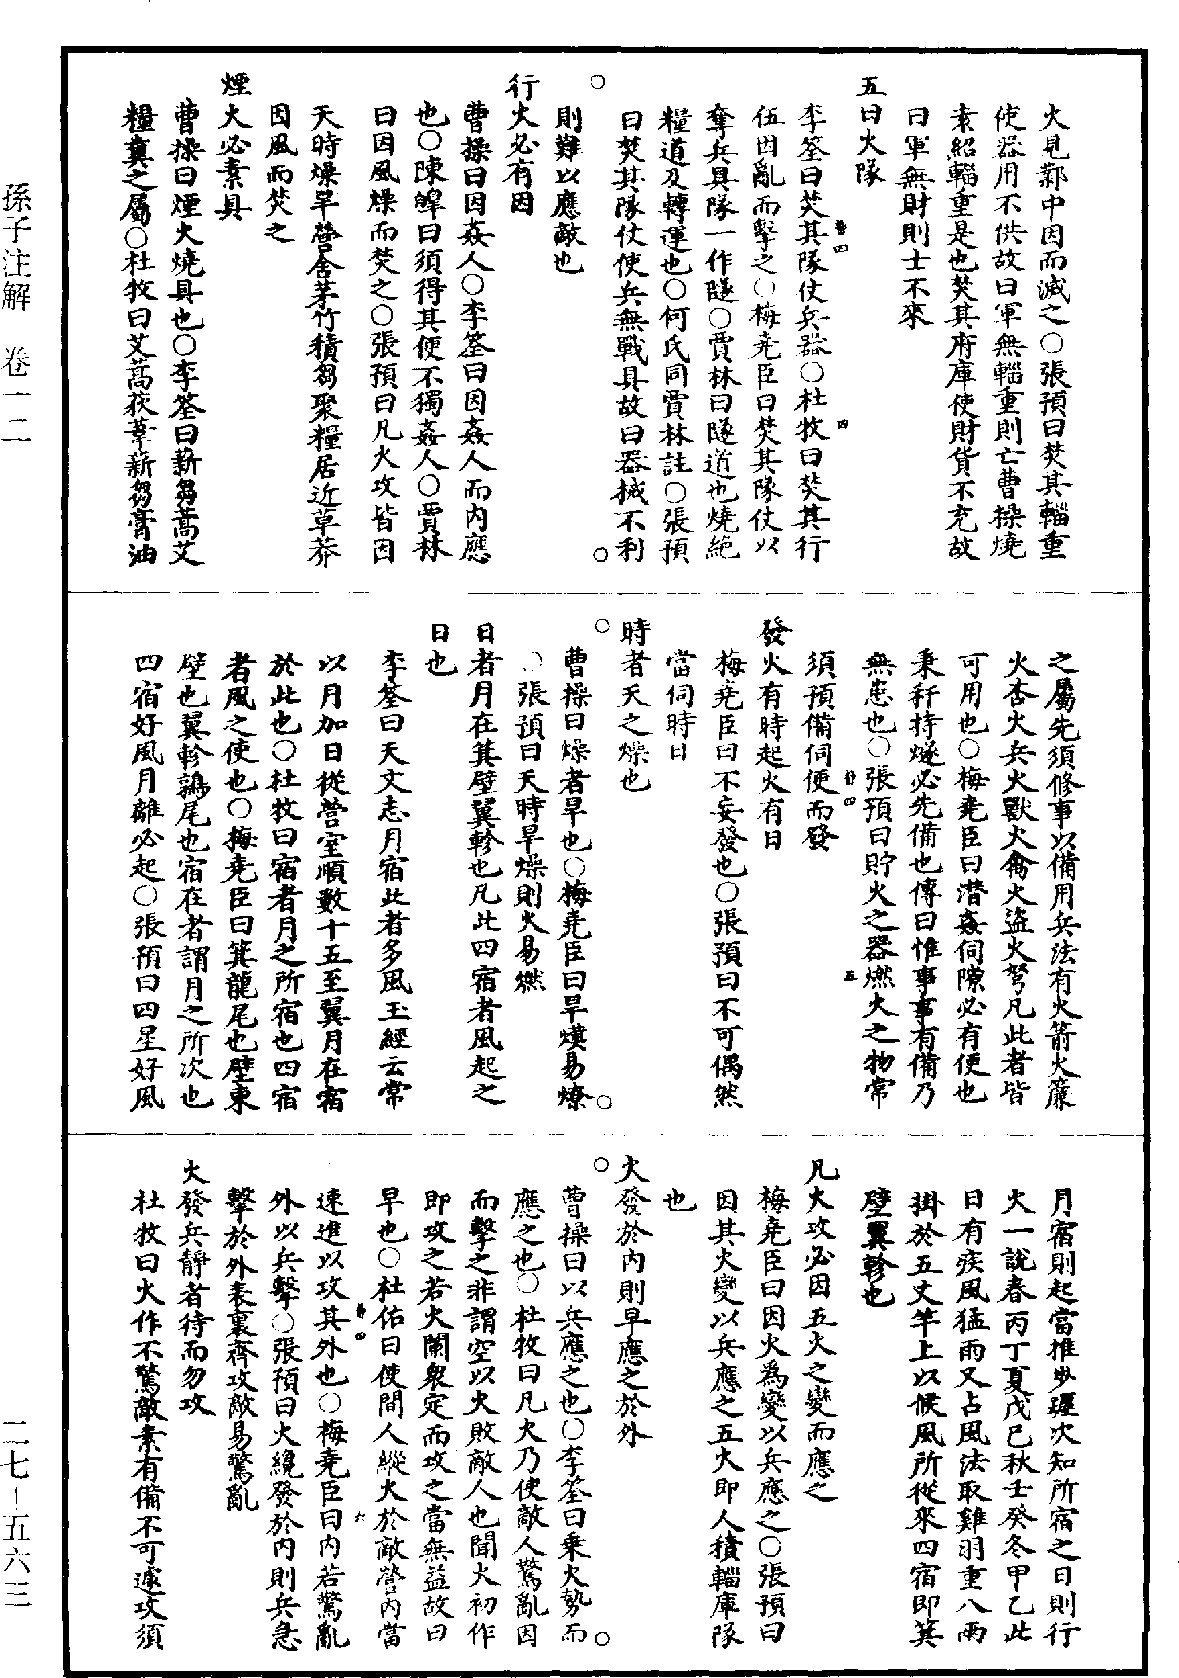 火見鄴中因而滅之〇張預曰焚其輜重
使器用不供故曰軍無輜重則亡曹操燒
袁紹輜重是也焚其府庫使財貨不充故
曰軍無財則士不來
五曰火隊
李筌曰焚其隊仗兵器〇杜牧曰焚其行
伍因亂而擊之〇梅堯臣曰焚其隊仗以
奪兵具隊一作隧〇賈林曰隧道也燒絶
糧道及轉運也〇何氏同賈林註〇張預
曰焚其隊仗使兵無戰具故曰器械不利
則難以應敵也
行火必有因
曹操曰因姦人〇李筌曰因姦人而内應
也〇陳皥曰須得其便不獨姦人〇賈林
曰因風燥而焚之〇張預曰凡火攻皆因
天時燥旱營舍茅竹積芻聚糧居近草莽
因風而焚之
煙火必素具
曹操曰煙火燒具也〇李筌曰薪芻蒿艾
糧糞之屬〇杜牧曰艾蒿荻葦薪芻膏油
之屬先須修事以備用兵法有火箭火簾
火杏火兵火獸火禽火盜火弩凡此者皆
可用也〇梅堯臣曰潛姦伺隙必有便也
秉秆持燧必先備也傳曰惟事事有備乃
無患也〇張預曰貯火之器燃火之物常
須預備伺便而發
發火有時起火有日
梅堯臣曰不妄發也〇張預曰不可偶然
當伺時日
時者天之燥也
曹操曰燥者旱也〇梅堯臣曰旱熯易燎
〇張預曰天時旱燥則火易燃
日者月在箕壁翼軫也凡此四宿者風起之
日也
李筌曰天文志月宿此者多風玉經云常
以月加日從營室順數十五至翼月在宿
於此也〇杜牧曰宿者月之所宿也四宿
者風之使也〇梅堯臣曰箕龍尾也壁東
壁也翼軫鶉尾也宿在者謂月之所次也
四宿好風月離必起〇張預曰四星好風
月宿則起當推步躔次知所宿之日則行
火一說春丙丁夏戊己秋壬癸冬甲乙此
日有疾風猛雨又占風法取雞羽重八兩
掛於五丈竿上以候風所從來四宿即箕
壁翼軫也
凡火攻必因五火之變而應之
梅堯臣曰因火為變以兵應之〇張預曰
因其火變以兵應之五火即人積輜庫隊
也
火發於内則早應之於外
曹操曰以兵應之也〇李筌曰乘火勢而
應之也〇杜牧曰凡火乃使敵人驚亂因
而擊之非謂空以火敗敵人也聞火初作
即攻之若火闌衆定而攻之當無益故曰
早也〇杜佑曰使間人縱火於敵營内當
速進以攻其外也〇梅堯臣曰内若驚亂
外以兵擊〇張預曰火纔發於内則兵急
擊於外表裏齊攻敵易驚亂
火發兵靜者待而勿攻
杜牧曰火作不驚敵素有備不可遽攻須
孫子注解 卷一二
二七-五六三